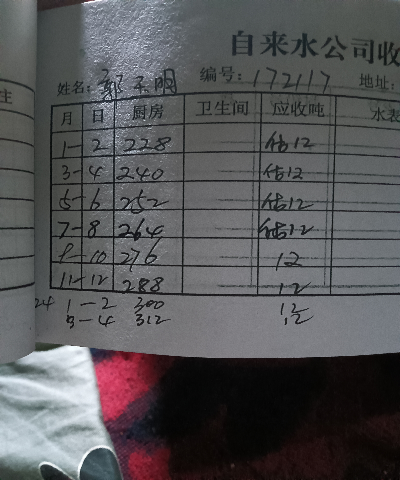 自来水公司收
姓名: 郭天明 编号: 172117 地址:
月 日 厨房 卫生间 应收吨 水表
1-2 228 估12
3-4 240 估12
5-6 252 估12
7-8 264 估12
9-10 276 12
11-12 288 12
24 1-2 300 12
3-4 312 12